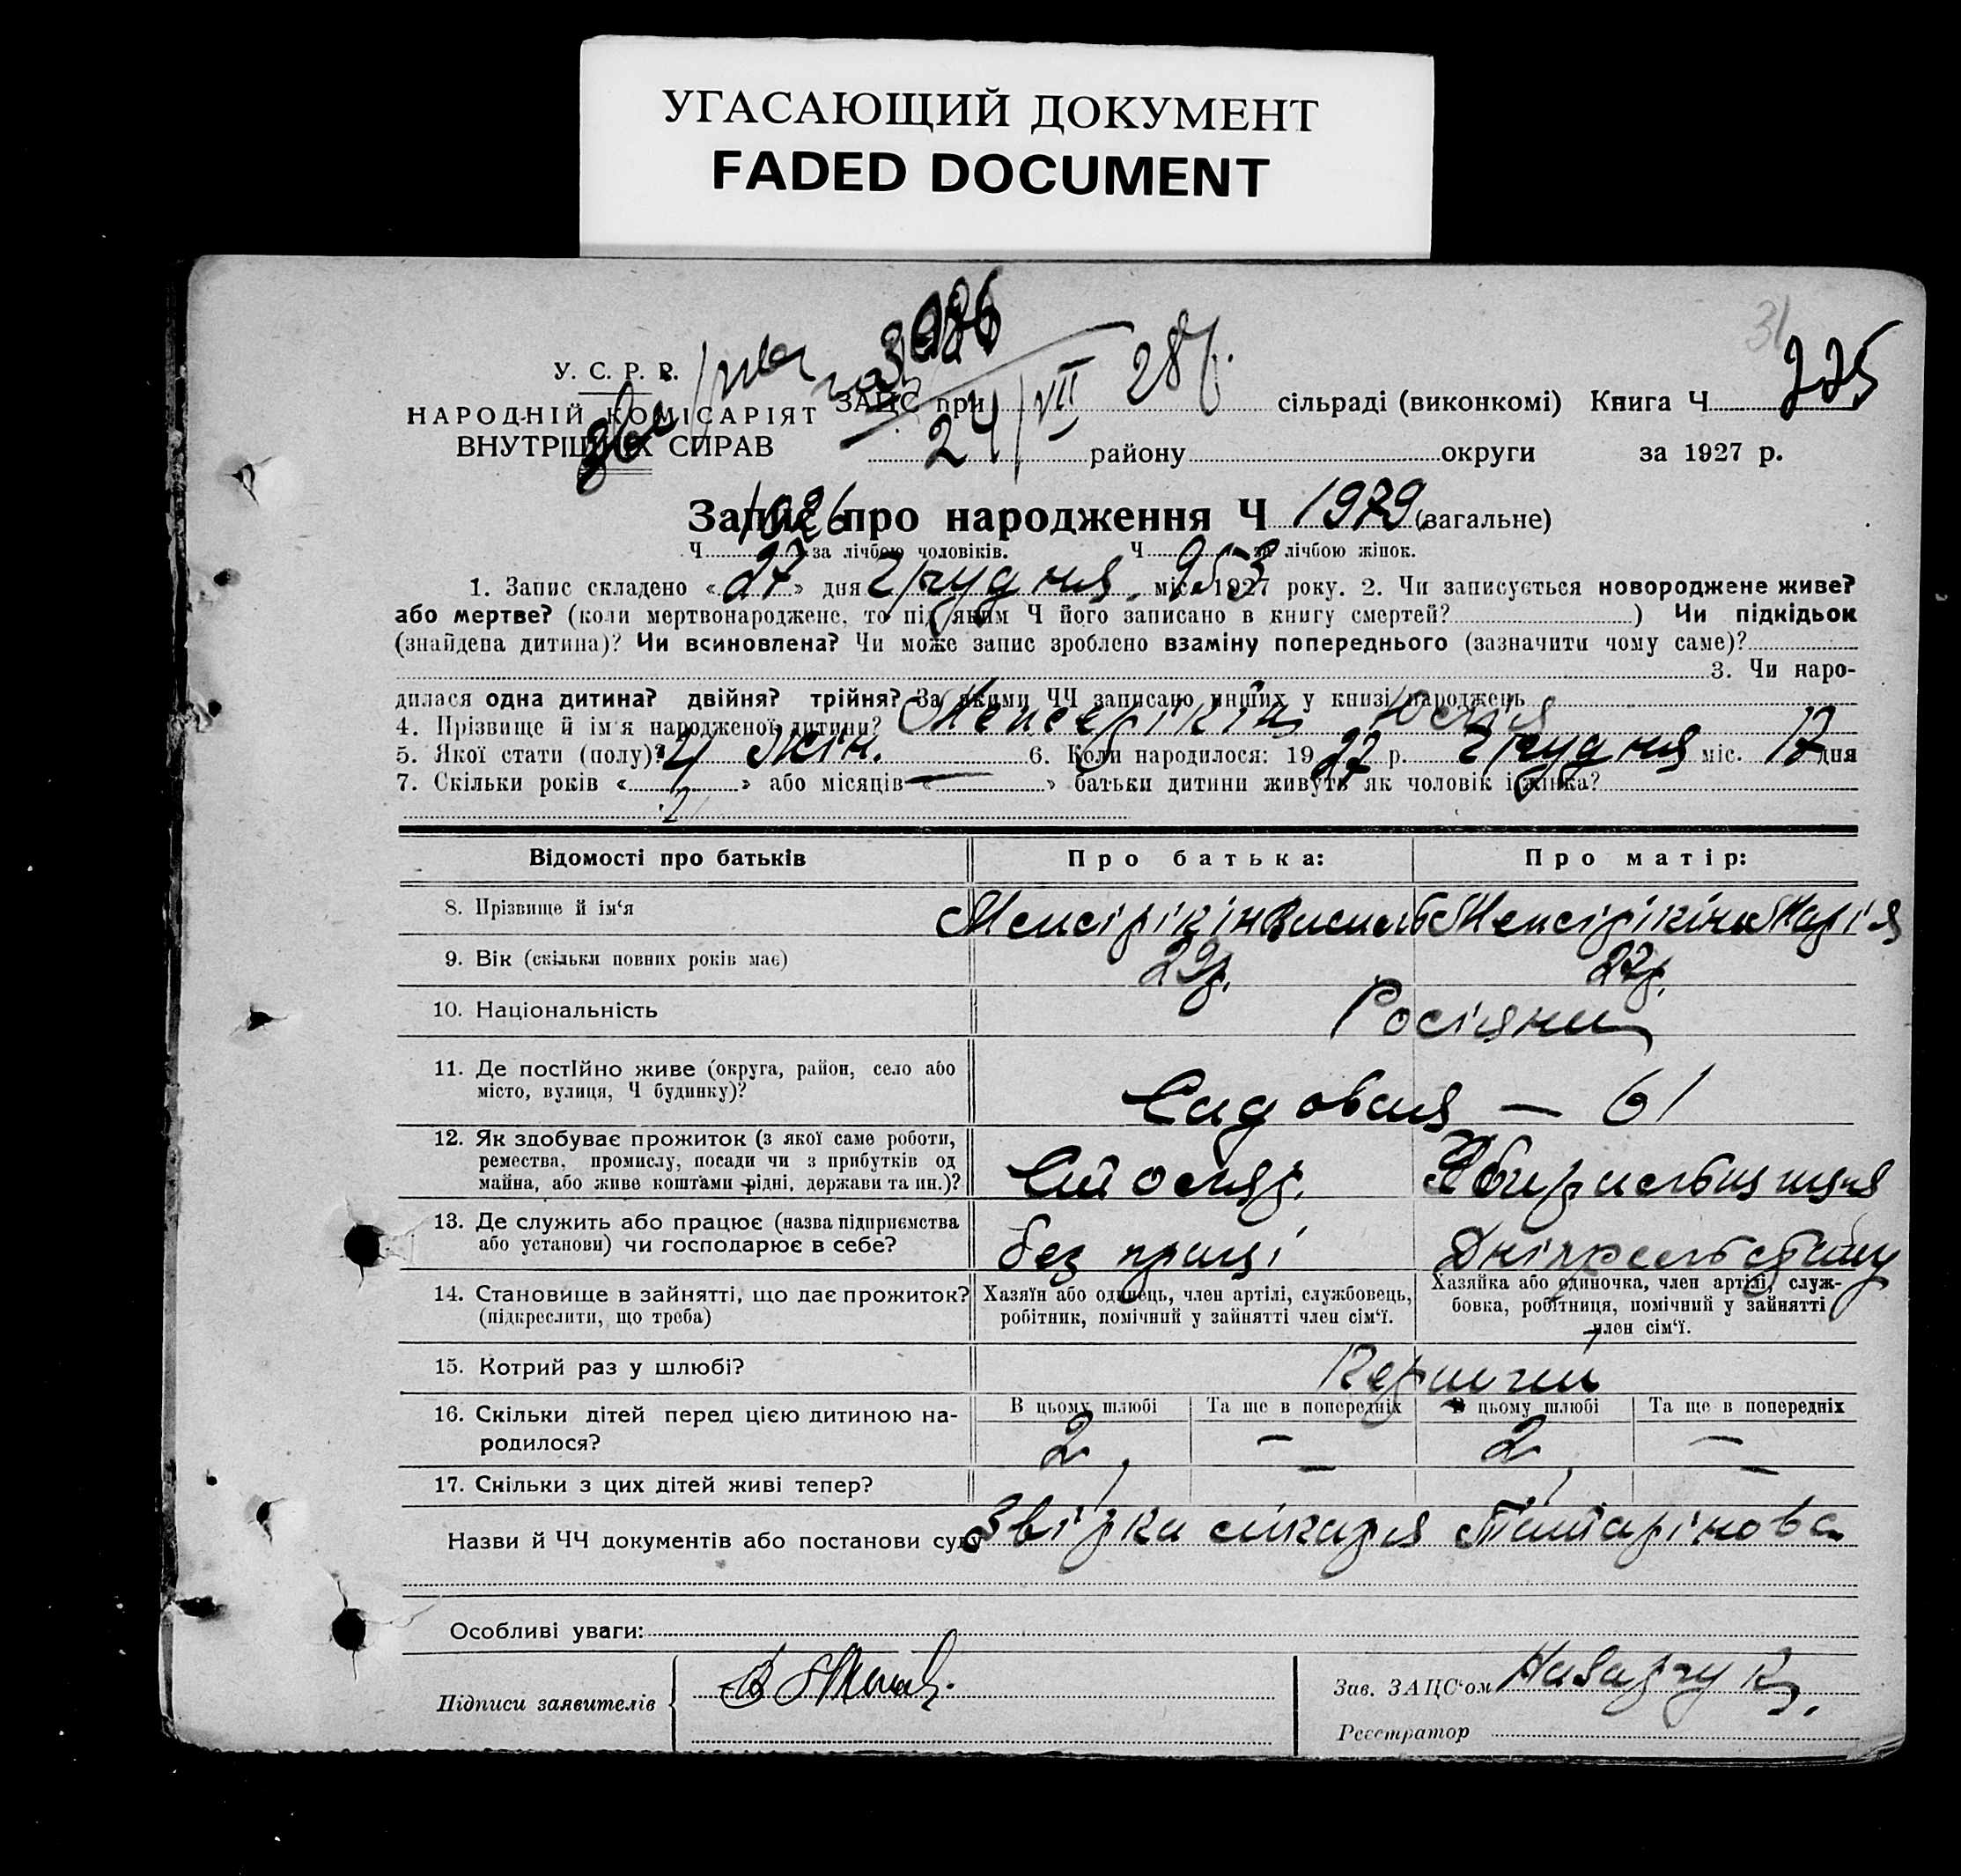 УГАСАЮЩИЙ ДОКУМЕНТ
FADED DOCUMENT
31
225
3086
У. С. Р. Р.
НАРОДНІЙ КОМІСАРІЯТ
ВНУТРІШНІХ СПРАВ
ЗАЦС при 24/VII 28р. сільраді (виконкомі) Книга Ч
району округи за 1927 р.
Запис про народження Ч 1979 (загальне)
Ч 1026 за лічбою чоловіків. Ч 953 за лічбою жінок.
1. Запис складено « 27 » дня Грудня міс. 1927 року. 2. Чи записується новороджене живе?
або мертве? (коли мертвонароджене, то під яким Ч його записано в книгу смертей? ) Чи підкідьок
(знайдена дитина)? Чи всиновлена? Чи може запис зроблено взаміну попереднього (зазначити чому саме)?
3. Чи наро-
дилася одна дитина? двійня? трійня? За якими ЧЧ записано инших у книзі народжень
4. Прізвище й ім'я народженої дитини?
5. Якої стати (полу)? жін. 6. Коли народилося: 1927 р. Грудня міс. 17 дня
7. Скільки років « 4 » або місяців « — » батьки дитини живуть як чоловік і жінка?
Відомості про батьків Про батька: Про матір:
8. Прізвище й ім'я Марія
9. Вік (скільки повних років має) 29р. 27р.
10. Національність Росіяни
11. Де постійно живе (округа, район, село або
місто, вулиця, Ч будинку)? Садовая — 61
12. Як здобуває прожиток (з якої саме роботи,
ремества, промислу, посади чи з прибутків од
майна, або живе коштами рідні, держави та ин.)? Столяр. Збиральниця
13. Де служить або працює (назва підприємства
або установи) чи господарює в себе? без праці Дніпрельстану
14. Становище в зайнятті, що дає прожиток?
(підкреслити, що треба)
Хазяїн або одинець, член артілі, службовець,
робітник, помічний у зайнятті член сім'ї.
Хазяйка або одиночка, член артілі, служ-
бовка, робітниця, помічний у зайнятті
член сім'ї.
15. Котрий раз у шлюбі? Перший
16. Скільки дітей перед цією дитиною на-
родилося?
В цьому шлюбі Та ще в попередніх В цьому шлюбі Та ще в попередніх
2 — 2 —
17. Скільки з цих дітей живі тепер? 1 — 1 —
Назви й ЧЧ документів або постанови суду Звірка лікаря Татарінова
Особливі уваги:
Підписи заявителів
Зав. ЗАЦС'ом Назарчук
Реєстратор